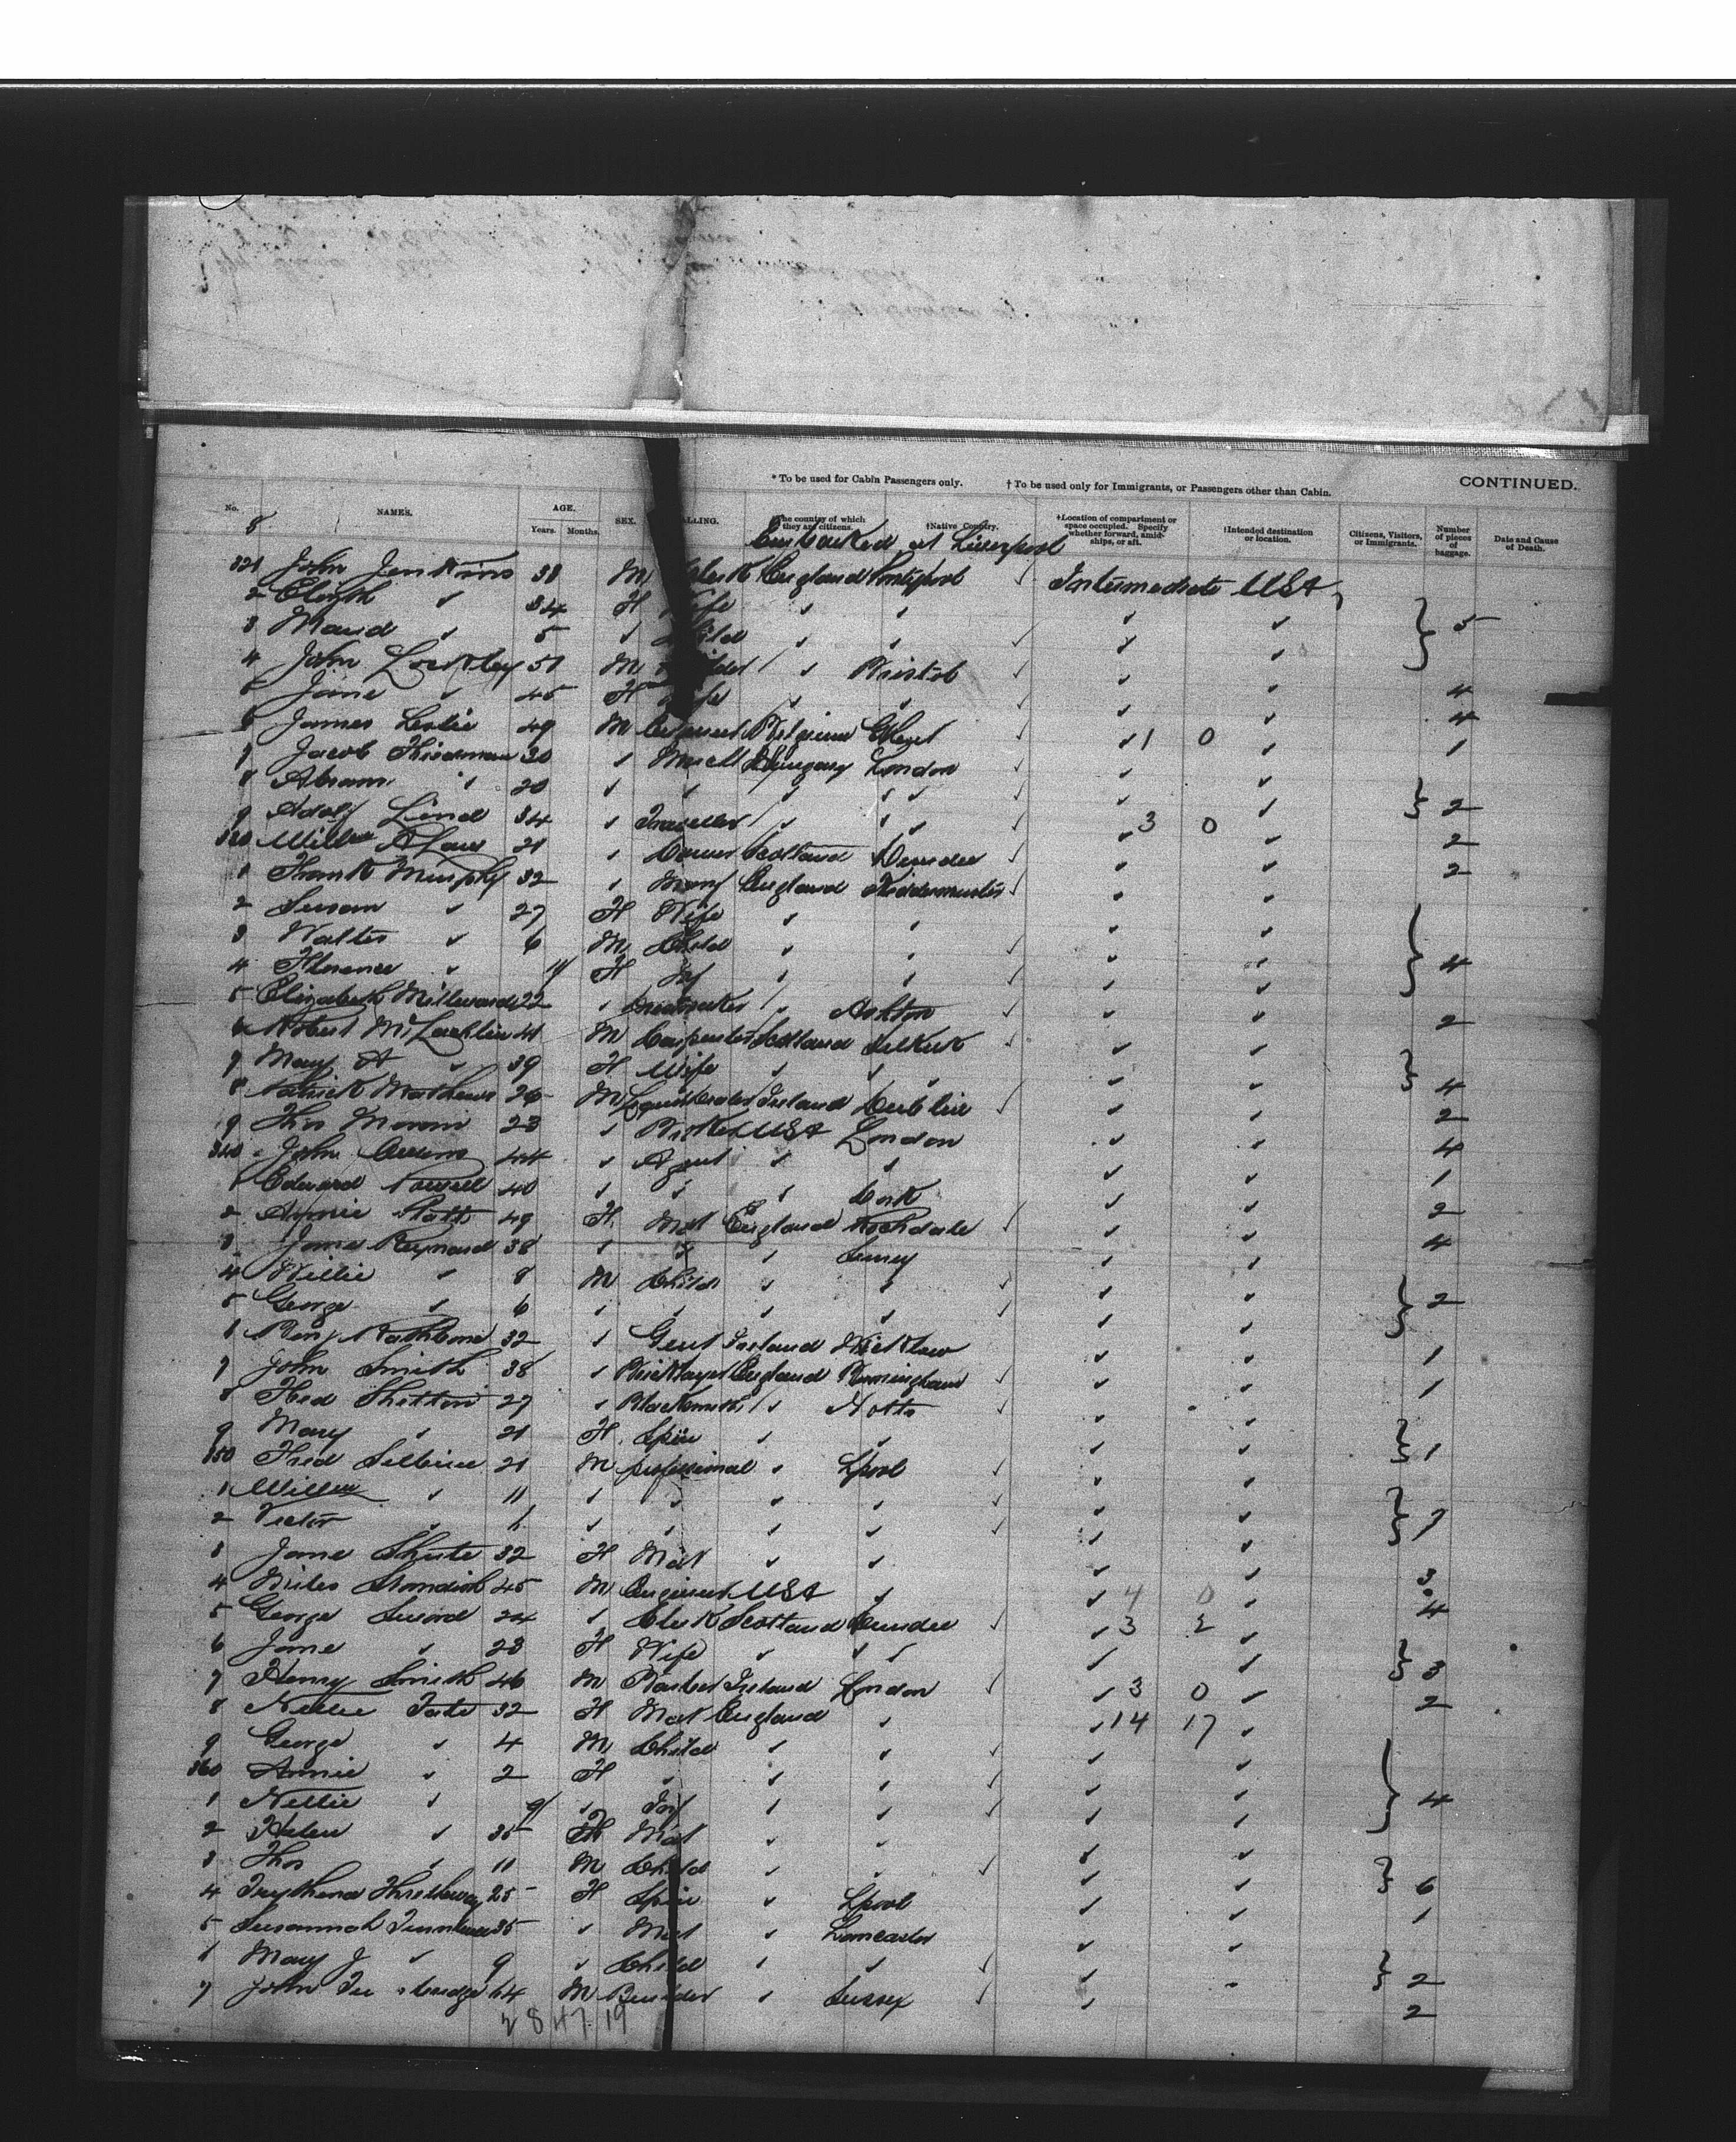 CONTINUED.
* To be used for Cabin Passengers only. † To be used only for Immigrants, or Passengers other than Cabin.
No. NAMES. AGE. Years. Months. SEX. ALLING. The country of which they are citizens. †Native Country. †Location of compartment or space occupied. Specify whether forward, amidships, or aft. †Intended destination or location. Citizens, Visitors, or Immigrants. Number of pieces of baggage. Date and Cause of Death.
8 Embarked at Liverpool
321 John Jenkins 38 M Clerk England Pontypool ✓ Intermediate USA
2 Elizth ✓ 34 F Wife ✓ ✓ ✓ ✓
3 Maud ✓ 5 ✓ Child ✓ ✓ ✓ ✓ ✓ } 5
4 John Lockley 51 M ✓ Bristol ✓ ✓ ✓
5 Jane ✓ 45 F Wife ✓ ✓ ✓ ✓ 4
6 James Leslie 49 M Belgium Ghent ✓ ✓ 1 0 ✓ 4
7 Jacob 30 ✓ Hungary London ✓ ✓ ✓ 1
8 Abram ✓ 20 ✓ ✓ ✓ ✓ ✓ ✓ ✓ ✓
9 Adolf Lind 34 ✓ Traveller ✓ ✓ ✓ ✓ ✓ 3 0 ✓ } 2
330 21 ✓ Scotland Dundee ✓ ✓ ✓ 2
1 Frank Murphy 32 ✓ England Kidderminster ✓ ✓ ✓ 2
2 Susan ✓ 27 F Wife ✓ ✓ ✓ ✓
3 Walter ✓ 6 M Child ✓ ✓ ✓ ✓ ✓
4 Florence ✓ F Inf ✓ ✓ ✓ ✓ ✓ } 4
5 Elizabeth Millward 22 ✓ ✓ Ashton ✓ ✓ ✓ 2
6 Robert McLachlin 41 M Carpenter Scotland Selkirk ✓ ✓ ✓
7 Mary A ✓ 39 F Wife ✓ ✓ ✓ ✓ ✓ } 4
8 Patrick Mathews 26 M Ireland Dublin ✓ ✓ ✓ 2
9 Thos 23 ✓ USA London ✓ ✓ 4
340 John 44 ✓ Agent ✓ ✓ ✓ ✓ 1
1 Edward Powell 40 ✓ ✓ ✓ Cork ✓ ✓ 2
2 Annie Platt 49 F Mat England Rochdale ✓ ✓ ✓ 4
3 Jane Reynard 38 ✓ ✓ ✓ Surrey ✓ ✓
4 Willie ✓ 8 M Child ✓ ✓ ✓ ✓ ✓
5 George ✓ 6 ✓ ✓ ✓ ✓ ✓ ✓ ✓ } 2
6 Benj Rathbone 32 ✓ Gent Ireland Wicklow ✓ ✓ 1
7 John Smith 38 ✓ Bricklayer England Birmingham ✓ ✓ ✓ 1
8 Fred Shetton 27 ✓ Blacksmith ✓ Notts ✓ ✓
9 Mary ✓ 21 F Spin ✓ ✓ ✓ ✓ } 1
350 Fred 21 M professional ✓ Lpool ✓ ✓ ✓
1 William ✓ 11 ✓ ✓ ✓ ✓ ✓ ✓ ✓
2 Victor ✓ ✓ ✓ ✓ ✓ ✓ ✓ ✓ } 7
3 Jane Shute 32 F Mat ✓ ✓ ✓ ✓ 3
4 Miles Standish 45 M Engineer USA ✓ ✓ 4 0 ✓ 4
5 George Sword 24 ✓ Clerk Scotland Dundee ✓ ✓ 3 2 ✓
6 Jane ✓ 23 F Wife ✓ ✓ ✓ ✓ ✓ } 3
7 Henry Smith 46 M Barber Ireland London ✓ ✓ 3 0 ✓ 2
8 Nellie Tate 32 F Mat England ✓ ✓ 14 17 ✓
9 George ✓ 4 M Child ✓ ✓ ✓ ✓ ✓
360 Annie ✓ 2 F ✓ ✓ ✓ ✓ ✓ ✓
1 Nellie ✓ 9 ✓ Inf ✓ ✓ ✓ ✓ ✓ } 4
2 Helen ✓ 35 F Mat ✓ ✓ ✓ ✓
3 Thos ✓ 11 M Child ✓ ✓ ✓ ✓ ✓ } 6
4 Tryphena 25 F Spin ✓ Lpool ✓ ✓ 1
5 Susannah 35 ✓ Mat ✓ Lancaster ✓ ✓
6 Mary J ✓ 9 ✓ Child ✓ ✓ ✓ ✓ } 2
7 John 64 M Builder ✓ Sussex ✓ ✓ 2
28 47 19